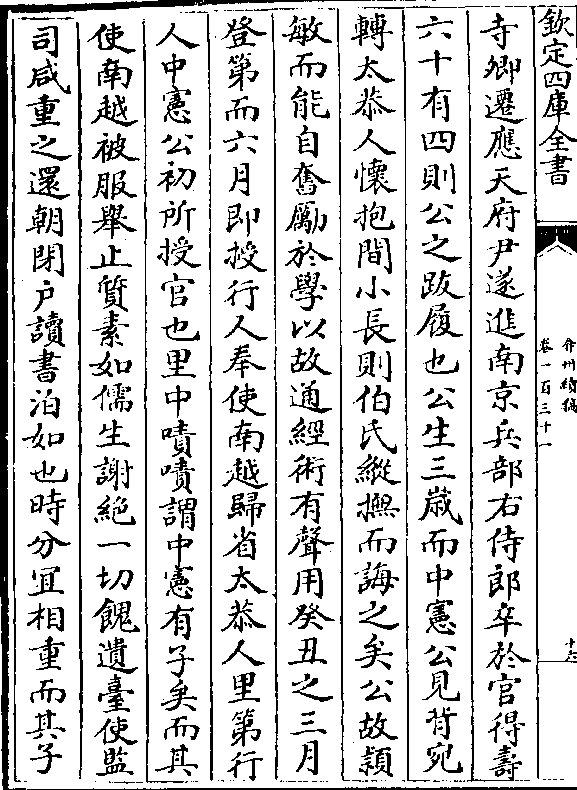 欽定四庫全書
弇州續稿
卷一百三十一
寺卿遷應天府尹遂進南京兵部右侍郎卒於官得壽
六十有四則公之跋履也公生三歲而中憲公見背宛
轉太恭人懷抱間小長則伯氏縱撫而誨之矣公故頴
敏而能自奮勵於學以故通經術有聲用癸丑之三月
登第而六月即授行人奉使南越歸省太恭人里第行
人中憲公初所授官也里中嘖嘖謂中憲有子矣而其
使南越被服舉止質素如儒生謝絶一切餽遺臺使監
司咸重之還朝閉戶讀書泊如也時分宜相重而其子